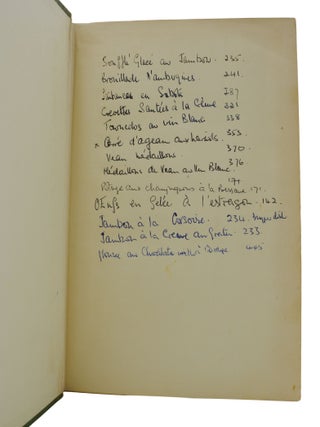 Soufflé Glacé au Jambon. 235.
Brouillade d'aubergines 241.
en Salade 287
Crevettes Sautées à la Crème 321
Tournedos au vin Blanc 338
x Carré d'agneau aux haricots. 353.
Veau Médaillons 370
Médaillons de Veau au Vin Blanc. 376
171
aux champignons à la 171.
Œufs en Gelée à l'estragon. 142.
Jambon à la 234.
Jambon à la Crème au Gratin 233.
Mousse au Chocolat